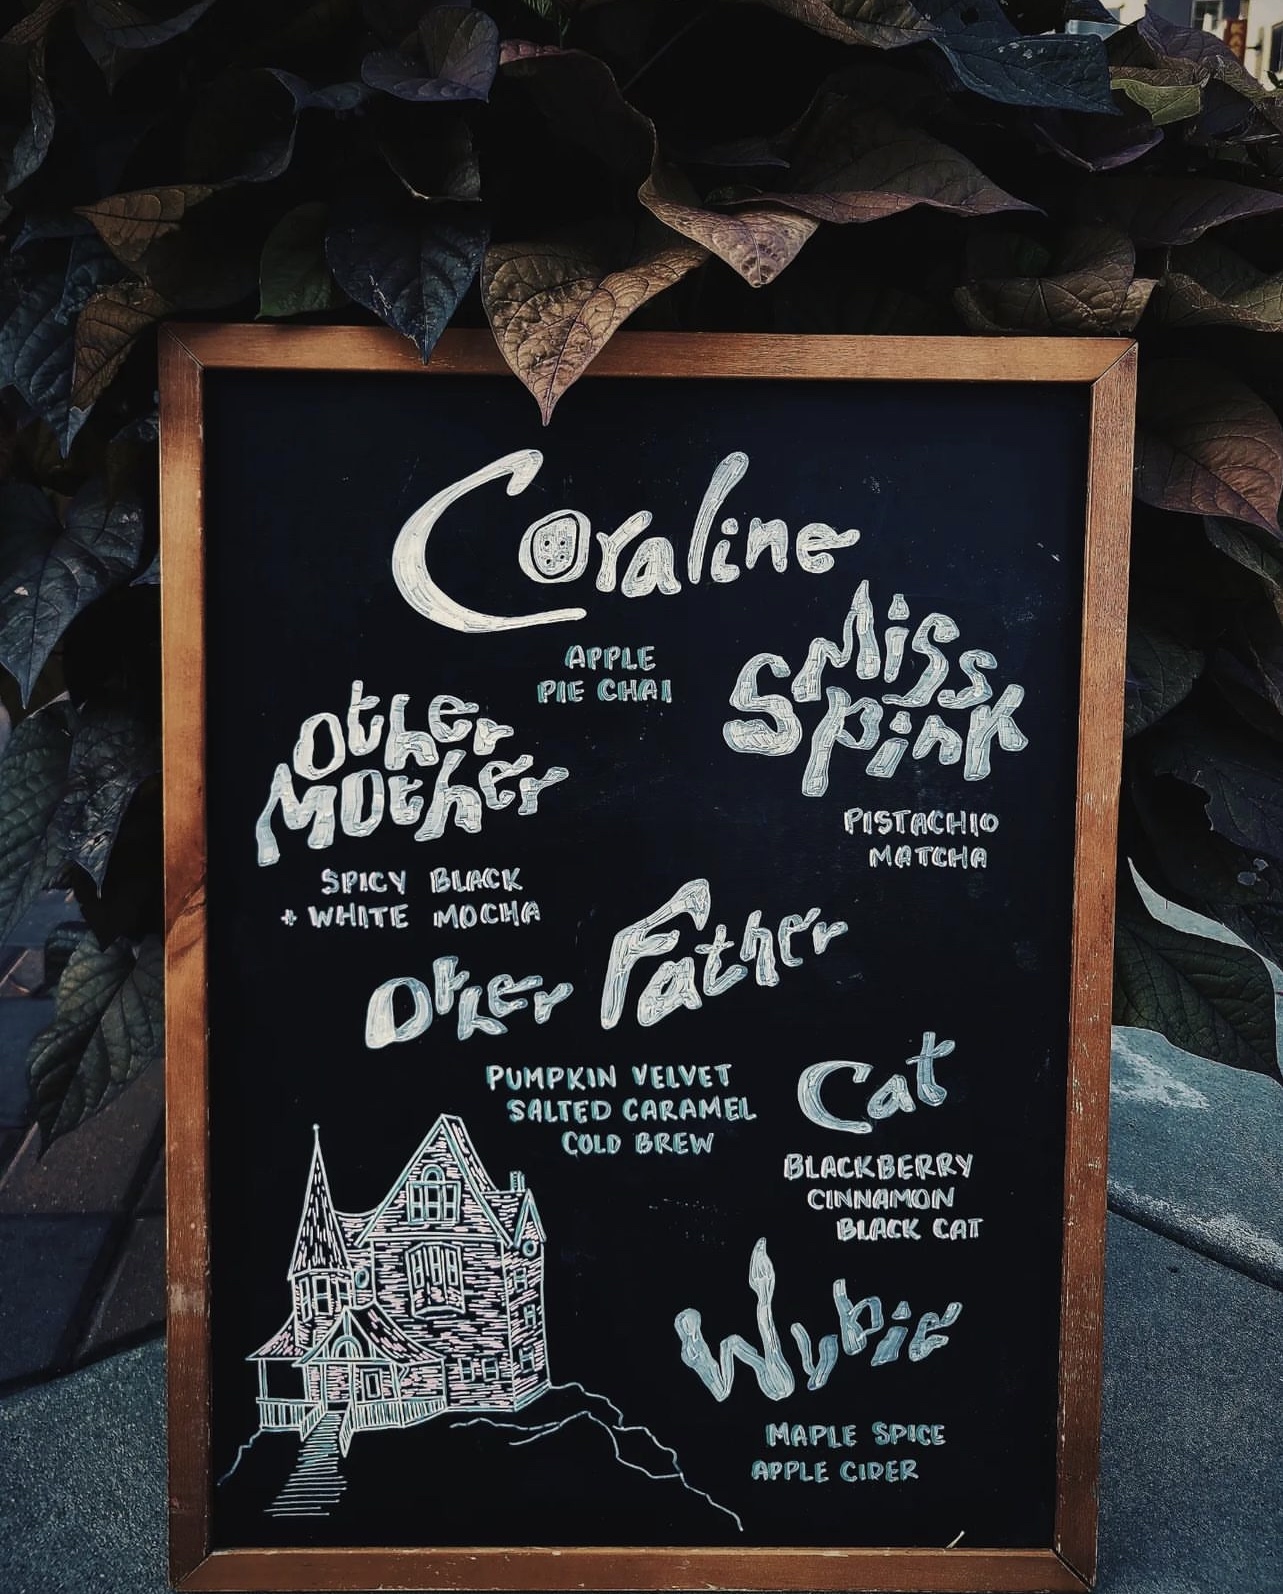 Coraline
APPLE
PIE CHAI
Miss
Spink
PISTACHIO
MATCHA
Other
Mother
SPICY BLACK
+ WHITE MOCHA
Other Father
PUMPKIN VELVET
SALTED CARAMEL
COLD BREW
Cat
BLACKBERRY
CINNAMON
BLACK CAT
Wybie
MAPLE SPICE
APPLE CIDER